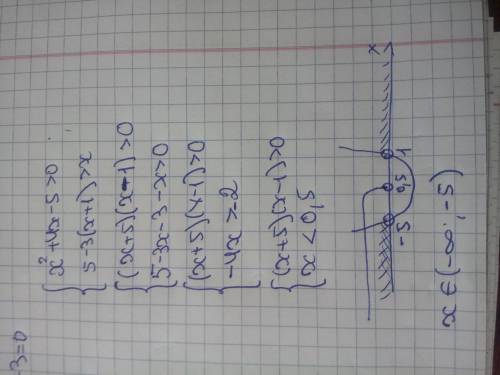 -3=0
{ x²+4x-5>0
{ 5-3(x+1)>x
{ (x+5)(x-1)>0
{ 5-3x-3-x>0
{ (x+5)(x-1)>0
{ -4x>-2
{ (x+5)(x-1)>0
{ x<0,5
-5 0,5 1 x
x∈(-∞;-5)